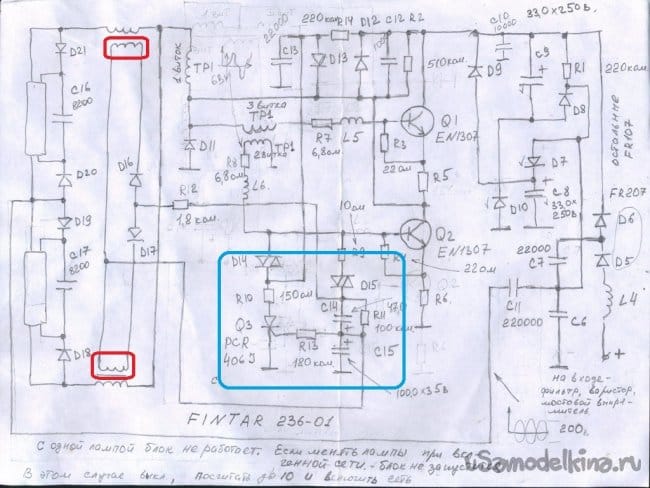 1 ВИТ
22000
220 ком. R14
D12
C12
R2
C10
10000
33,0х250в.
D21
1 виток
TP1
6 в
C13
D13
100
510 ком
D9
C9
R1
220 ком.
D8
остальные
FR107
C16
8200
3 витка
TP1
TP1
2 витка
R7
6,8 ом.
L5
Q1
EN1307
R3
22 ом
D11
R8
6,8 ом.
L6.
D7
D20
D16
R12
1,8 ком.
R5
D10
C8
33,0х
250в.
FR207
D6
D19
10 ом
Q2
EN1307
C17
8200
D17
D14
R9
D15
22 ом
22000
C7
D5
R10
150 ом
C14
47,0
R11
100 ком.
R6.
C11
220000
L4
C6
Q3
PCR
406J
R13
180 ком.
C15
+
D18
100,0 х 35 в
на входе -
фильтр, варистор,
мостовой выпря-
митель
200 г
FINTAR 236-01
С одной лампой блок не работает. Если менять лампы при вкл
ченной сети - блок не запустится
В этом случае выкл, посчитать до 10 и включить сеть
uSamodelkina.ru